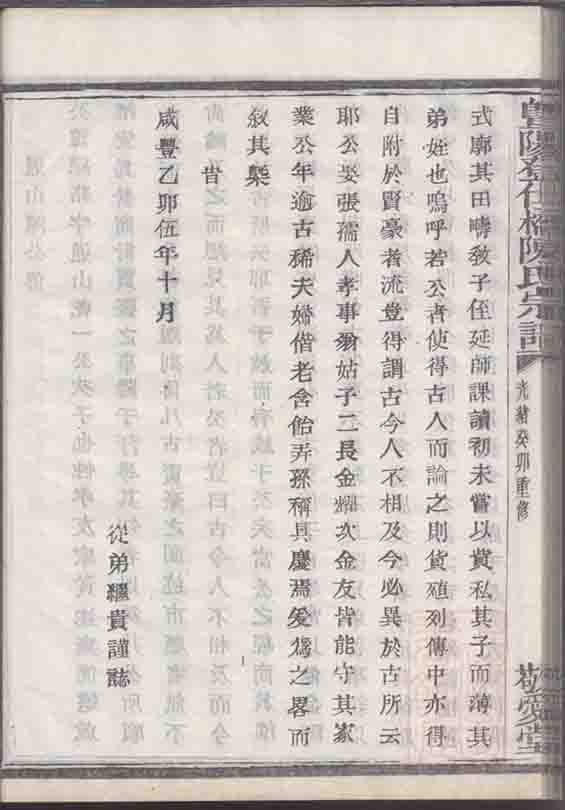 暨陽登仕橋陳氏宗譜
光緒癸卯重修
敬愛堂
式廓其田疇教子侄延師課讀初未嘗以貲私其子而薄其
弟姪也嗚呼若公者使得古人而論之則貨殖列傳中亦得
自附於賢豪者流豈得謂古今人不相及今必異於古所云
耶公娶張孺人孝事翁姑子二長金耀次金友皆能守其家
業公年逾古稀夫婦偕老含飴弄孫稱具慶焉爰為之畧而
敘其槩
旹
咸豐乙卯伍年十月
從弟繼貴謹誌